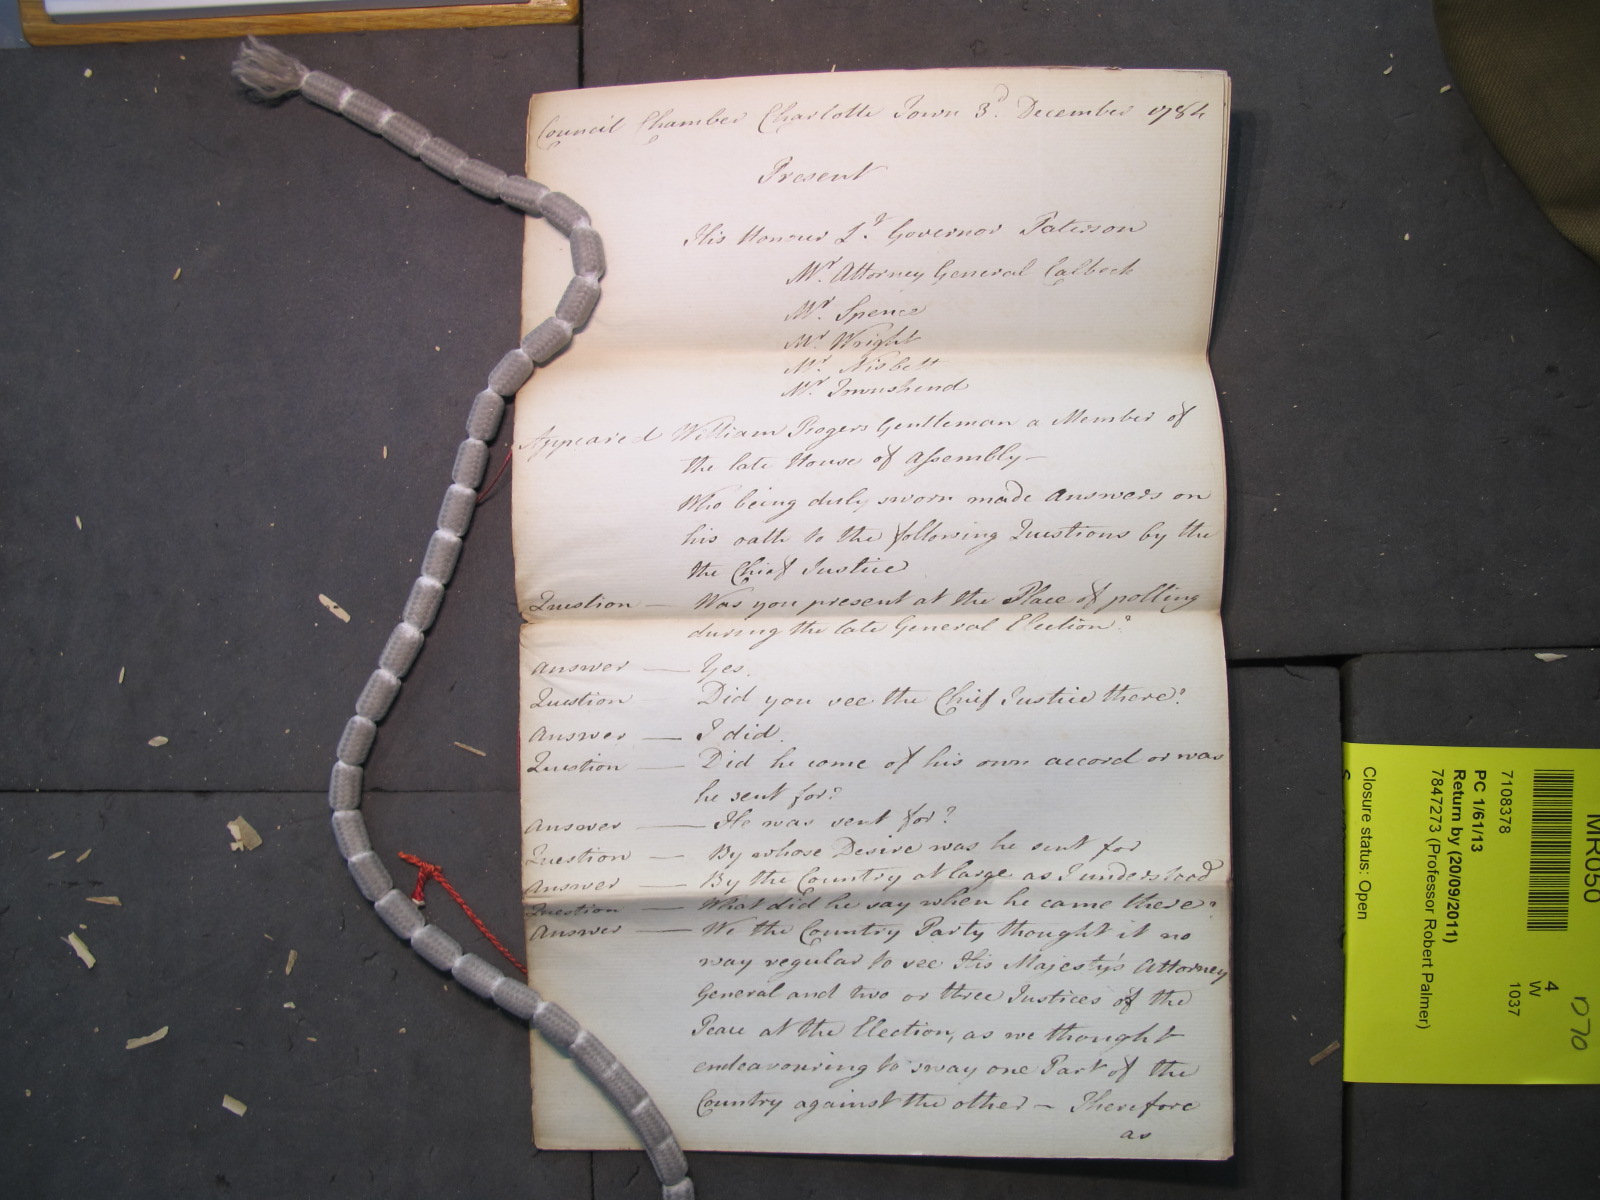 Council Chamber Charlotte Town 3d. December 1784
Present
His Honour Lt. Governor Paterson
Mr. Attorney General Calbeck
Mr. Spence
Mr. Wright
Mr. Nisbett
Mr. Townshend
Appeared William Rogers Gentleman a Member of
the late House of Assembly—
Who being duly sworn made Answers on
his oath to the following Questions by the
the Chief Justice
Question — Was you present at the Place of polling
during the late General Election?
Answer — Yes.
Question Did you see the Chief Justice there?
Answer — I did.
Question — Did he come of his own accord or was
he sent for?
Answer — He was sent for?
Question — By whose Desire was he sent for
Answer — By the Country at large as I understood
Question — What did he say when he came there?
Answer — We the Country Party thought it no
way regular to see His Majesty's Attorney
General and two or three Justices of the
Peace at the Election, as we thought
endeavouring to sway one Part of the
Country against the other — Therefore
as
MR050
4
W
1037
D70
7108378
PC 1/61/13
Return by (20/09/2011)
7847273 (Professor Robert Palmer)
Closure status: Open